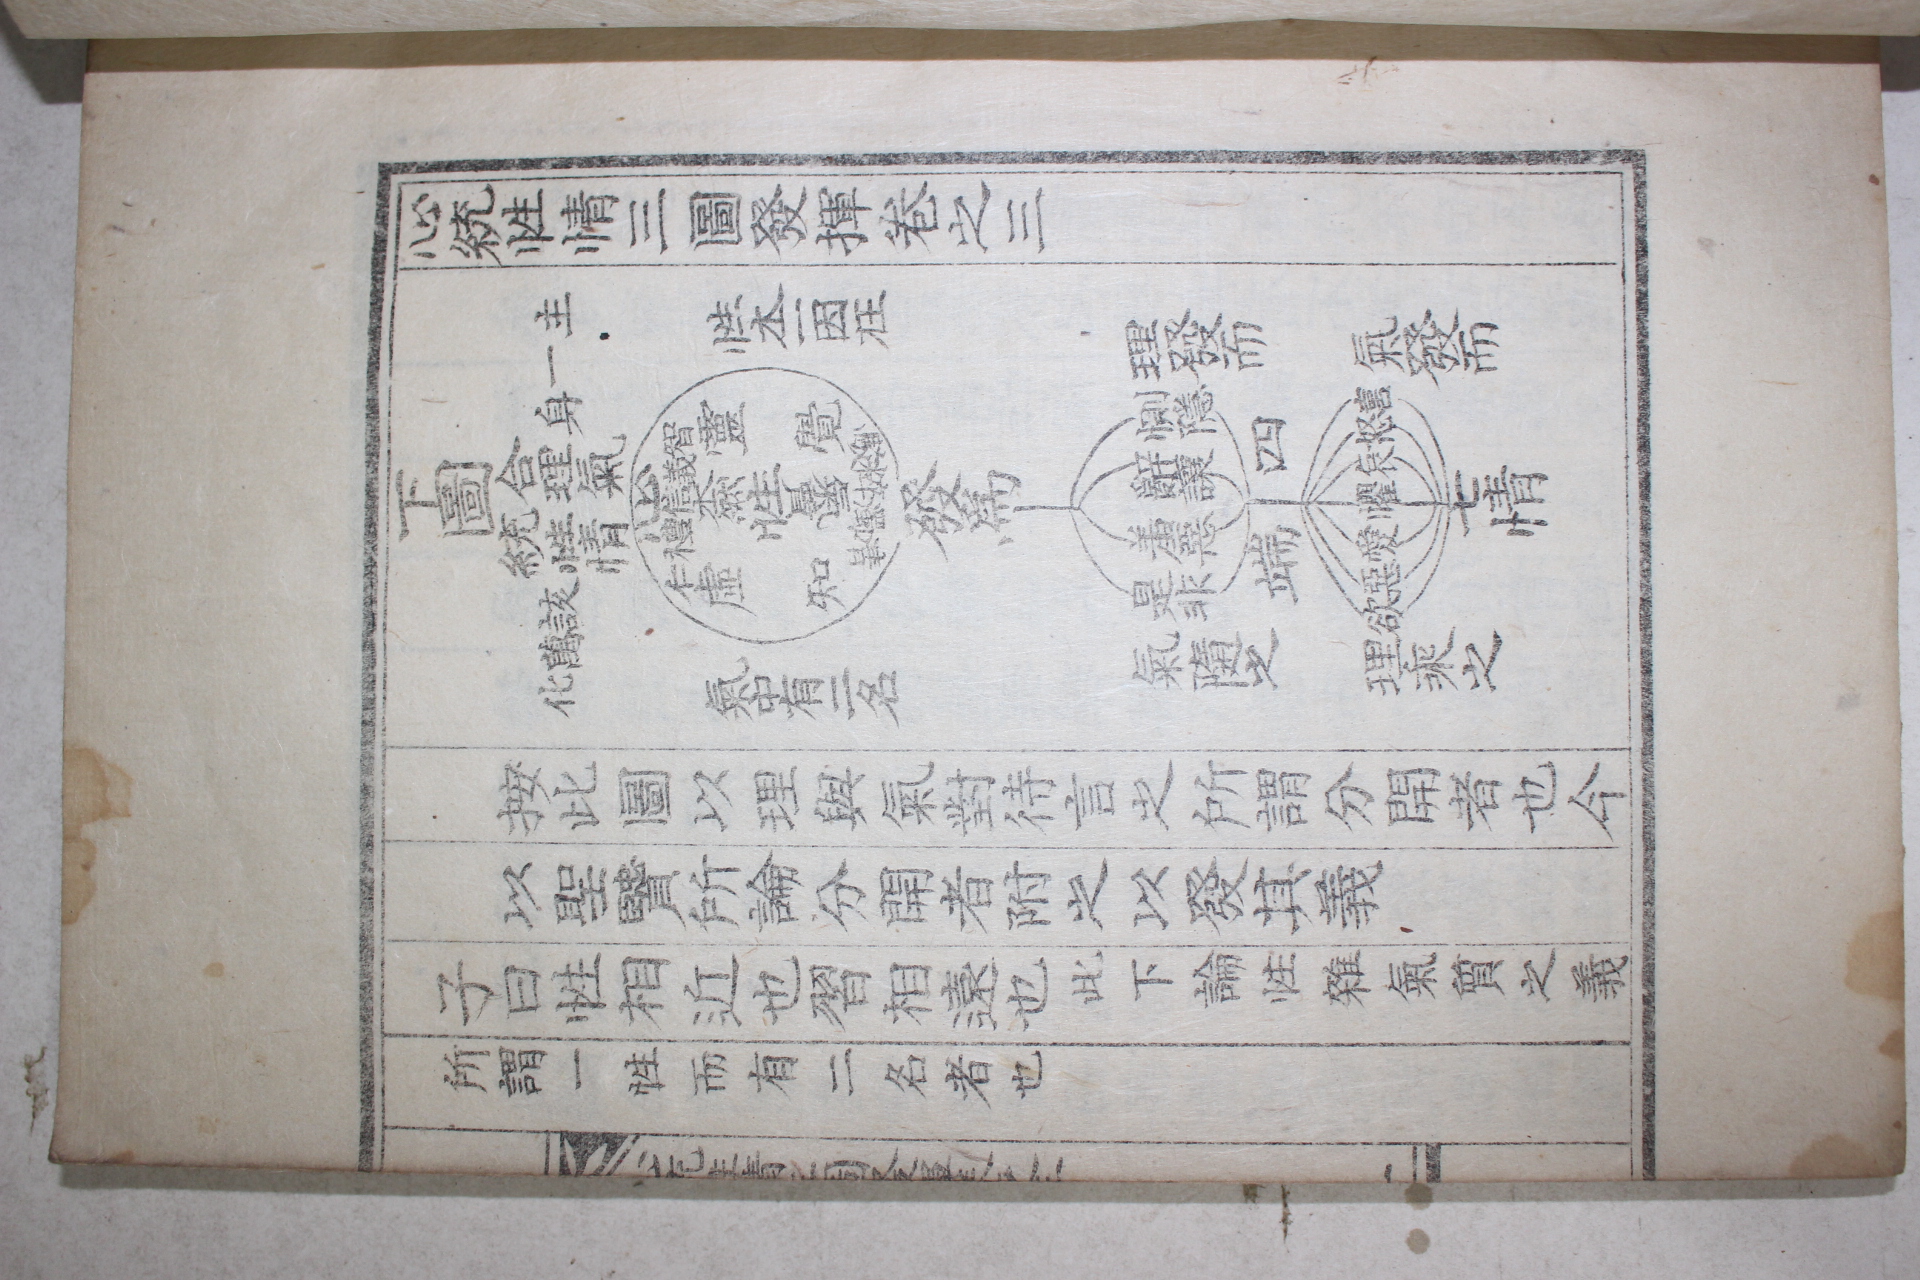 心統性情三圖發揮卷之三
下圖
合理氣
統性情
主一身
該萬化
心
智
義
信
禮
仁
靈
本然
虛
性
覺
知
性本一因在
氣中有二名
發爲
惻隱
辭讓
羞惡
是非
理發而
氣隨之
四端
喜
怒
哀
懼
愛
惡
欲
氣發而
理乘之
七情
按此圖以理與氣對待言之所謂分開者也今
以聖賢所論分開者附之以發其義
子曰性相近也習相遠也此下論性雜氣質之義
所謂一性而有二名者也